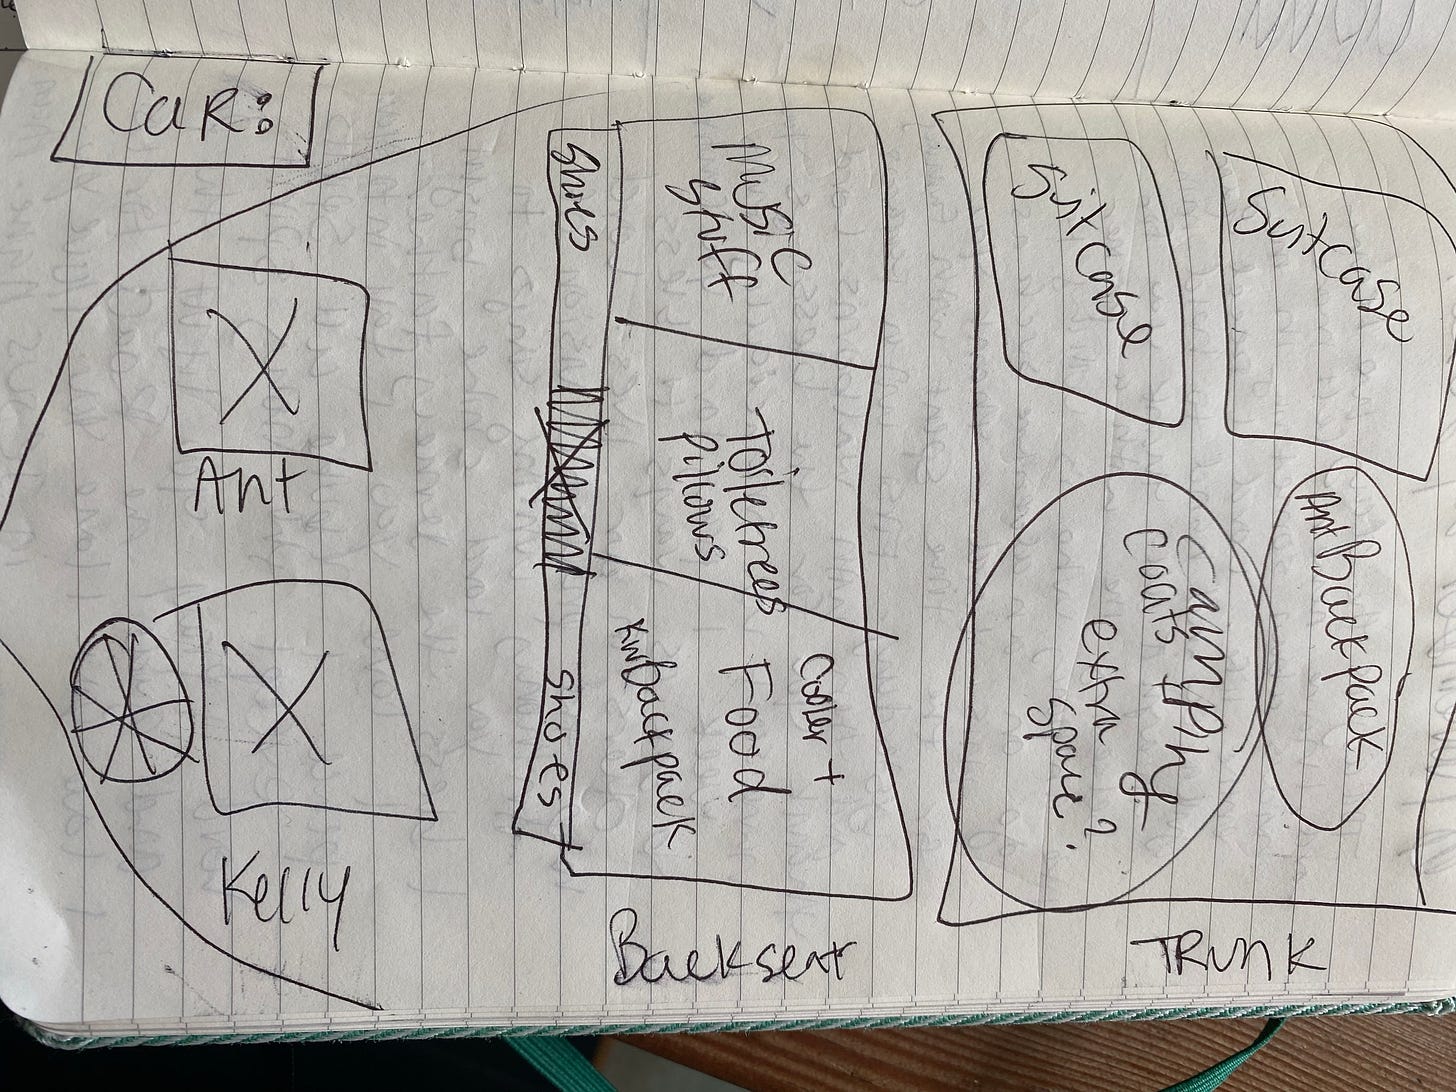 Car:
Ant
Kelly
Shoes
Shoes
Music
Stuff
Toiletrees
pillows
Cooler +
Food
KMBackpack
Backseat
Suitcase
Suitcase
Camping
Coats
extra
space?
Ant Backpack
TRUNK